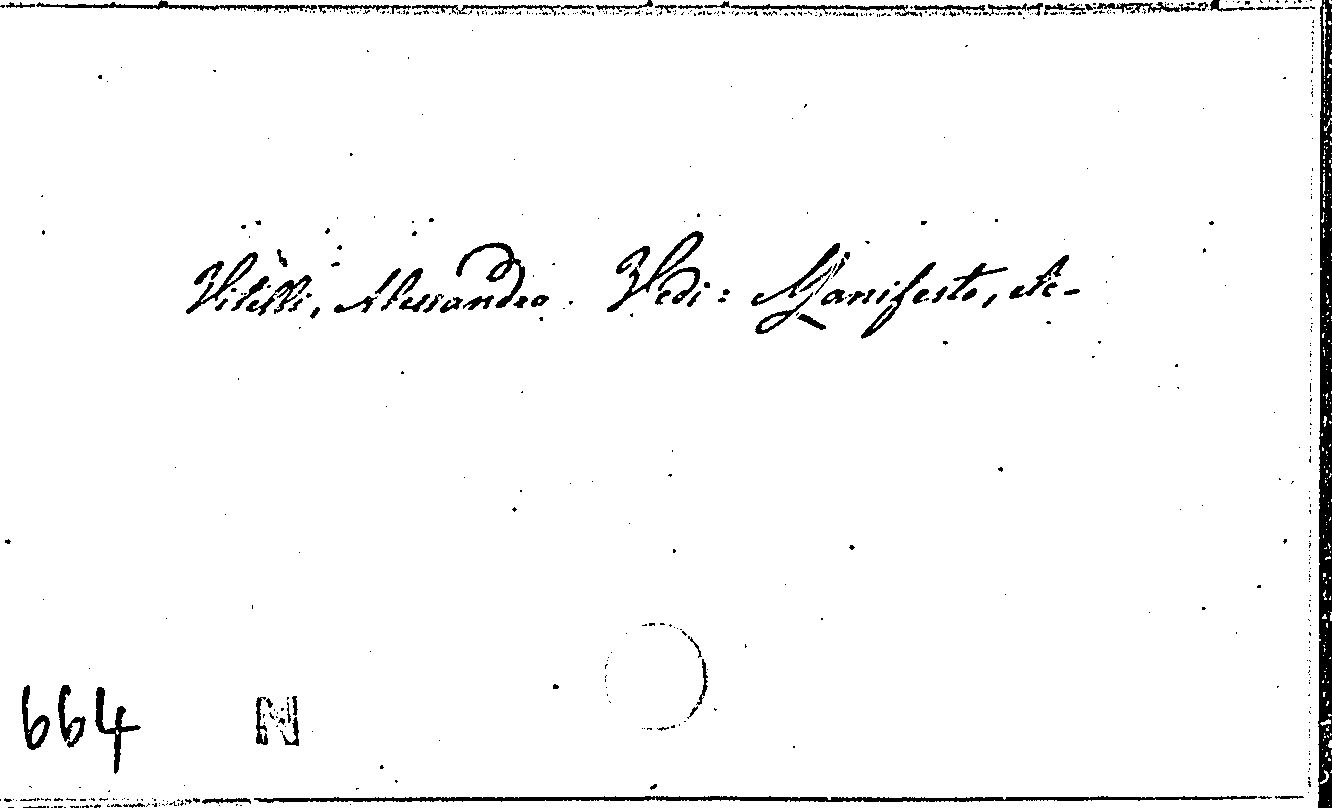 Vitelli, Alessandro. Vedi: Manifesto, etc-
664 N